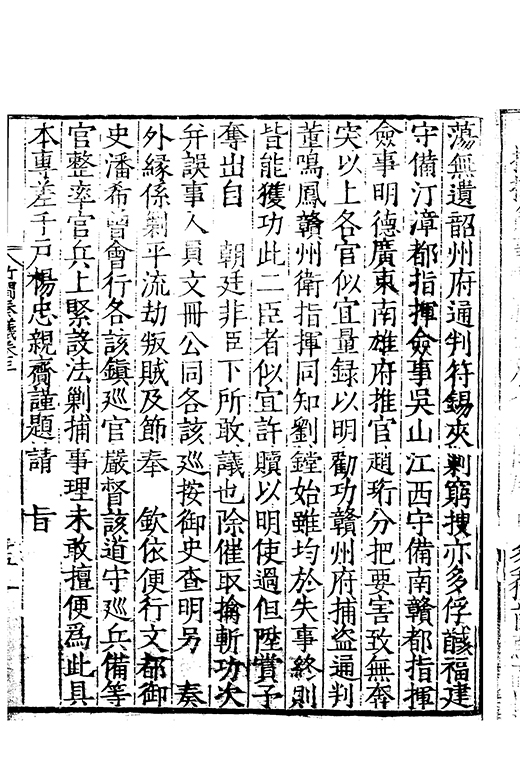 蕩無遺韶州府通判符錫夾剿窮搜亦多俘馘福建
守備汀漳都指揮僉事吳山江西守備南贛都指揮
僉事明德廣東南雄府推官趙珩分把要害致無奔
突以上各官似宜量録以明勸功贛州府捕盗通判
董鳴鳳贛州衛指揮同知劉鏜始雖均於失事終則
皆能獲功此二臣者似宜許贖以明使過但陞賞予
奪出自　朝廷非臣下所敢議也除催取擒斬功次
并誤事人員文冊公同各該巡按御史查明另　奏
外緣係剿平流劫叛賊及節奉　欽依便行文都御
史潘希曾會行各該鎮巡官嚴督該道守巡兵備等
官整率官兵上緊設法剿捕事理未敢擅便爲此具
本專差千戸楊忠親齎謹題請　旨